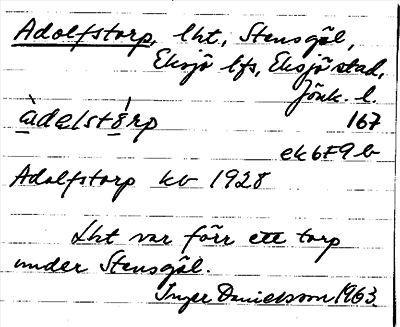 Adolfstorp, lht, Stensgöl,
Eksjö lfs, Eksjö stad,
Jönk. l.
àdelstórp 167
ek 679 b
Adolfstorp kb 1928
Lht var förr ett torp
under Stensgöl.
Inger Danielsson 1963.